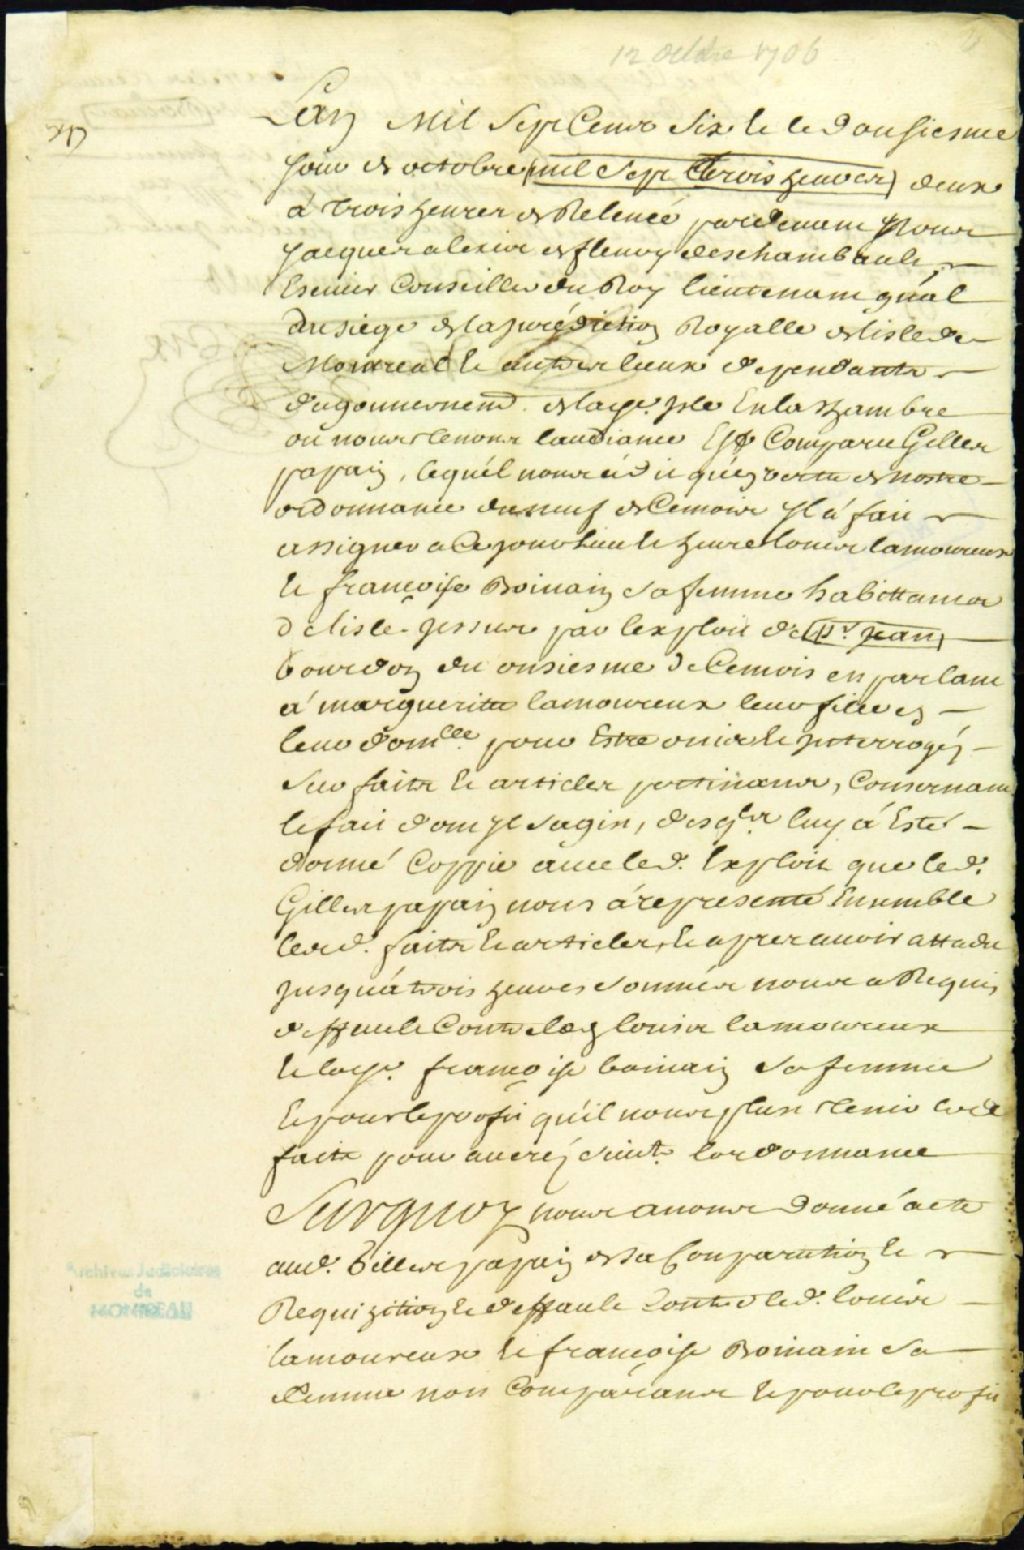 12 octobre 1706
Lan Mil Sept Cents Six le le dousiesme
Jour de octobre mil sept trois heures deux
à trois heures de Relevée pardevant Nous
Jacques alexis de fleury deschambault
Escuier Conseiller du Roy lieutenant gnâl
du siege de la jurêdiction Royalle de lisle de
Montreal & autres lieux dependants
du gouvernemt. de lad. Isle En la Chambre
ou nous tenons laudiance Est Comparu Gilles
papin, lequel nous a dit quen vertu de nostre
ordonnance du neuf de Ce mois Il a fait
assigner a Ce jourdhui & heure louis lamoureux
& françoise Boivain sa femme habittants
de lisle jesus par lexploit de pr. jean
bourdon du onsiesme de Ce mois en parlant
a marguerite lamoureux leur fille en
leur domlle pour Estre ouis & Interrogés
sur faits & articles pertinants, Consernant
le fait dont yl sagist, desqls luy à Esté
donné Coppie avec led. Exploit que led.
Gilles papin nous a representé Ensemble
lesd. faits & articles, & apres avoir attadu
jusqu'à trois heures sonnées nous a Requis
deffault Contre led louis lamoureux
& lad. françoise boivain sa femme
& pour le profit qu'il nous plust tenir lesd
faits pour averés suivt. lordonnance
Surquoy nous avons donné acte
aud. Gilles papin de sa Comparution &
Requizition & deffault Contre led. louis
lamoureux & françoise Boivain sa
femme non Comparants & pour le profit